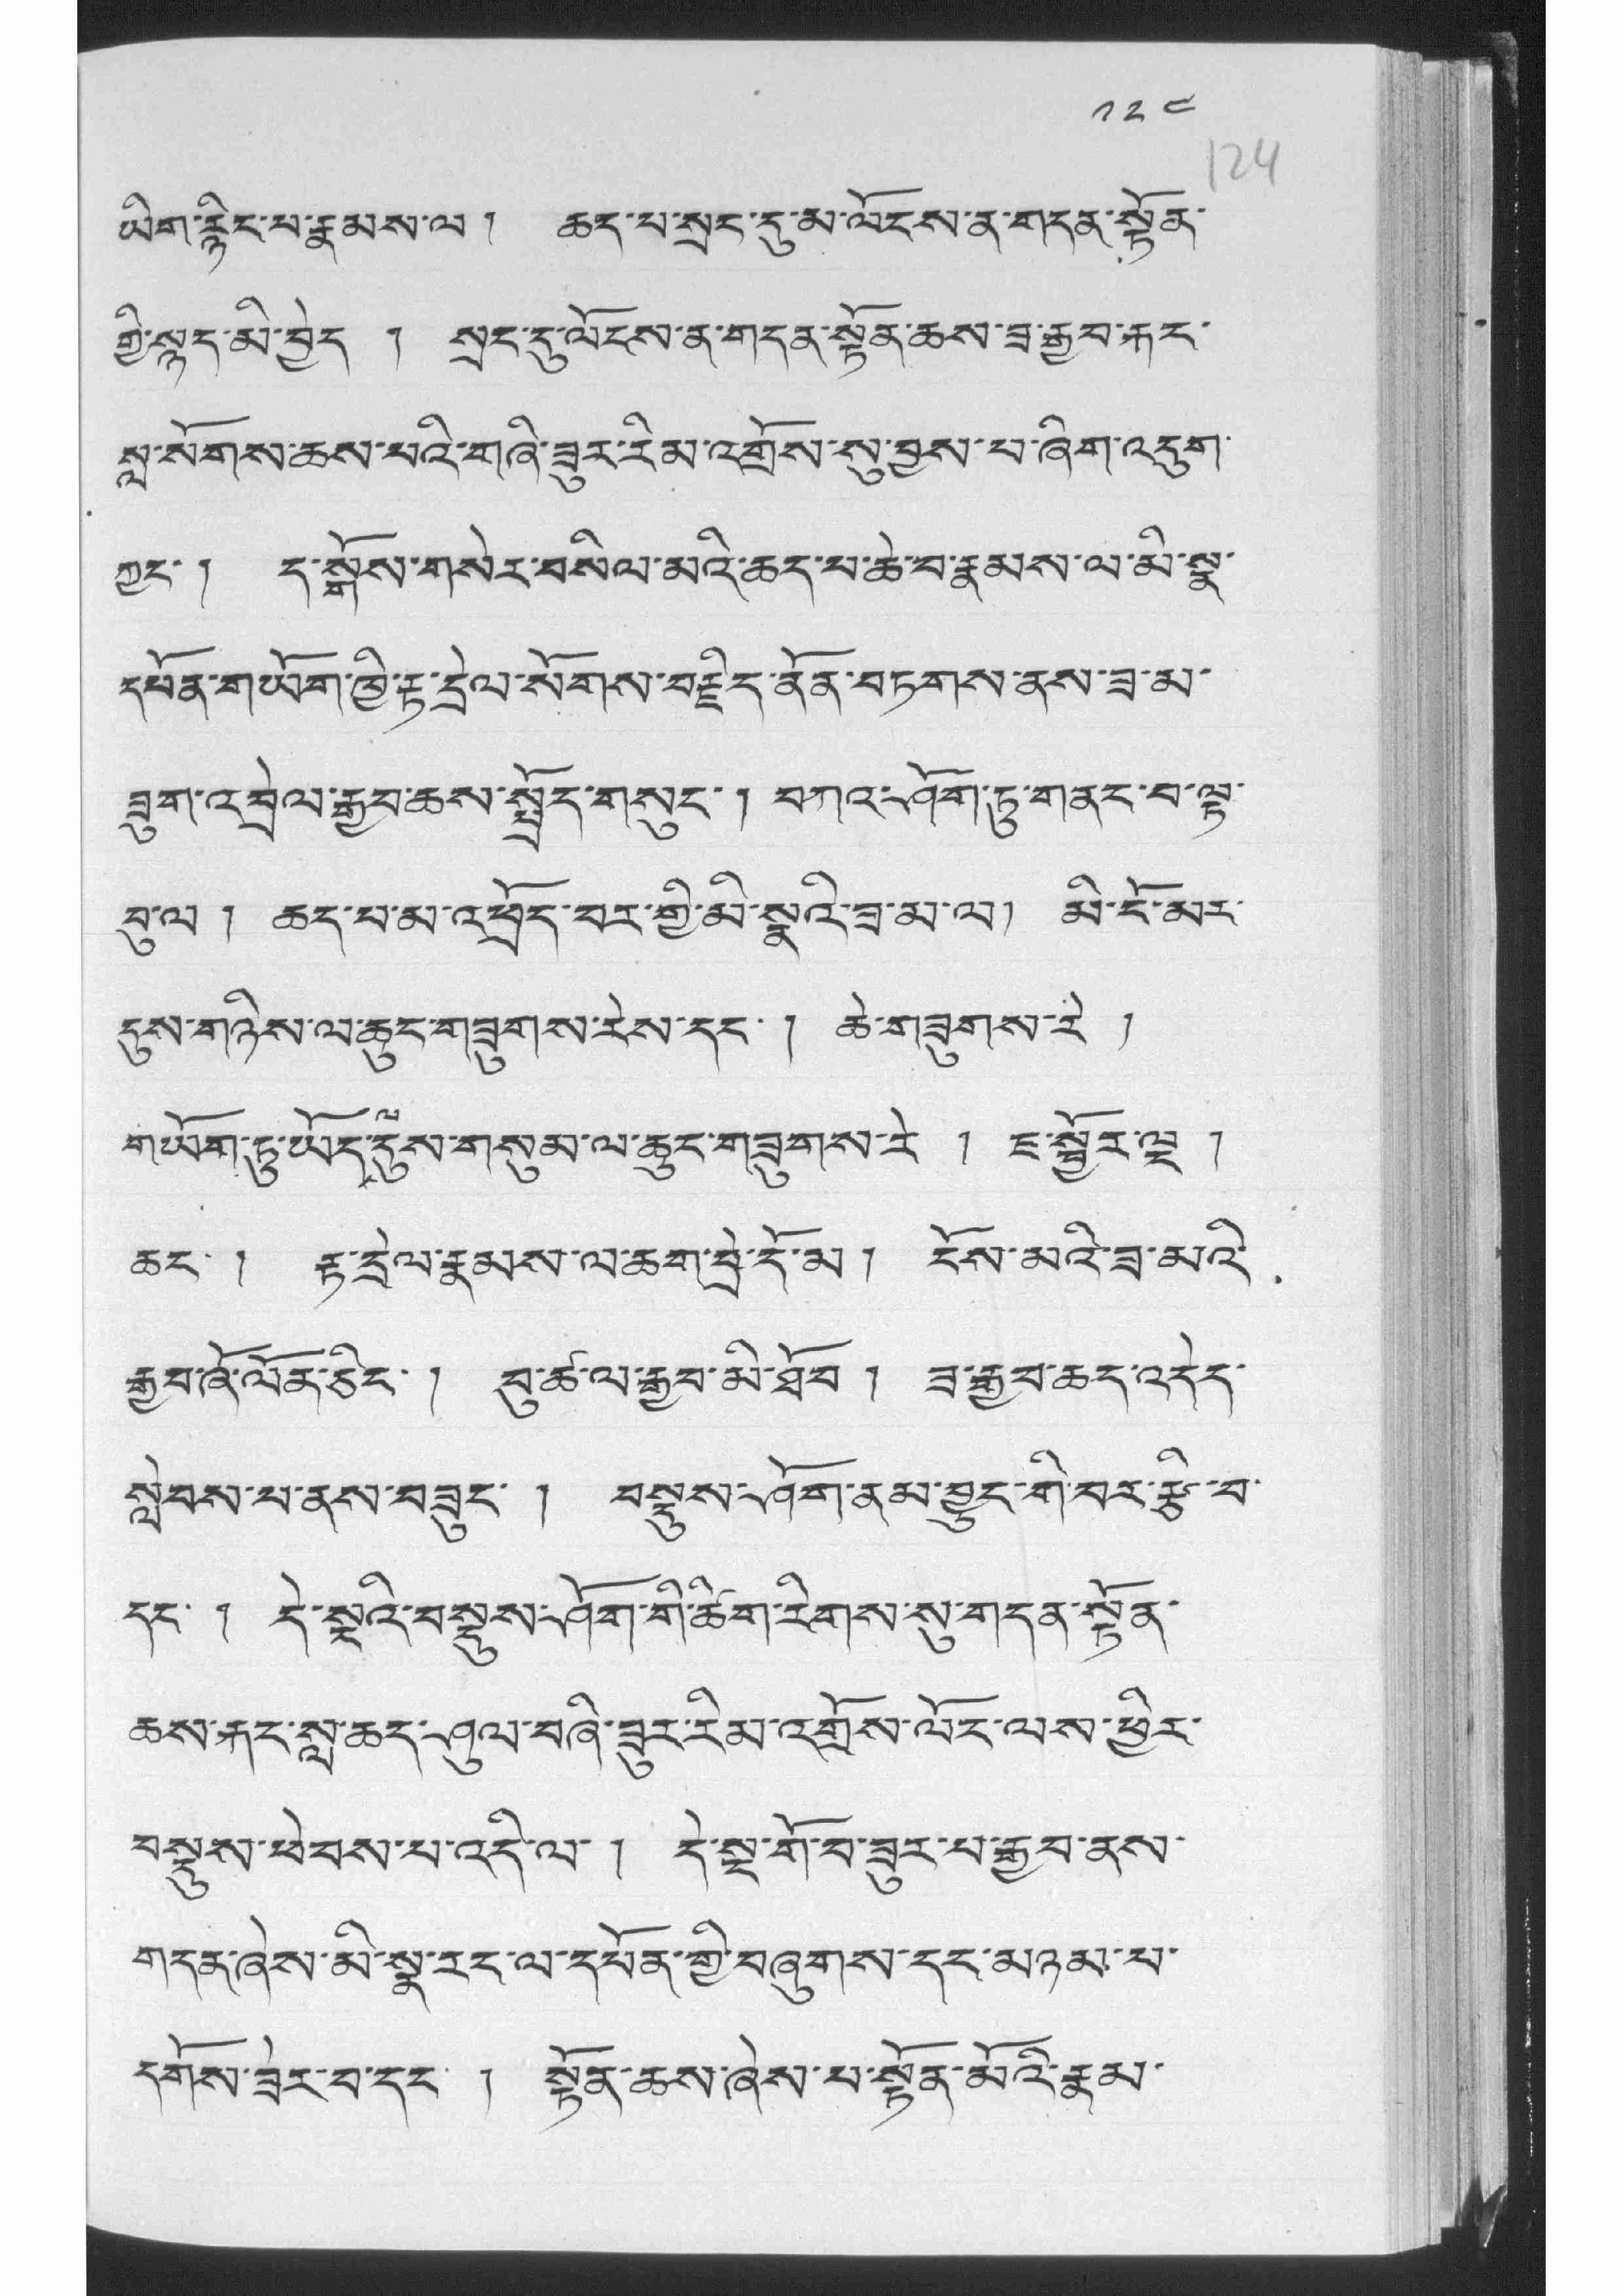 ༡༢༤
124
ཡིག་རྙིང་པ་རྣམས་ལ། ཆད་པ་སྲང་དུ་མ་ལོངས་ན་གདན་སྟོན་
གྱི་སྙད་མི་བྱེད ། སྲང་དུ་ལོངས་ན་གདན་སྟོན་ཆས་ཟ་རྒྱབ་རྐང་
སླ་སོགས་ཆས་པའི་གཞི་ཟུར་རིམ་འགྲོས་སུ་བྱས་པ་ཞིག་འདུག་
ཀྱང་། ད་སྒོས་གསེར་བསིལ་མའི་ཆད་པ་ཆེ་བ་རྣམས་ལ་མི་སྣ་
དཔོན་གཡོག་ཁྱི་རྟ་དྲེལ་སོགས་བརྗིད་ནོན་བཏགས་ནས་ཟ་མ་
ཟུག་འབྲེལ་རྒྱབ་ཆས་སྤྲོད་གསུང་། བཀའ་ཤོག་ཏུ་གནང་བ་ལྟ་
བུ་ལ། ཆད་པ་མ་འཕྲོད་བར་གྱི་མི་སྣའི་ཟ་མ་ལ། མི་ངོ་མར་
དུས་གཉིས་ལ་ཆུང་གཟུགས་རེས་དང་། ཆེ་གཟུགས་རེ །
གཡོག་ཏུ་ཡོད་ལ་དུས་གསུམ་ལ་ཆུང་གཟུགས་རེ ། ང་སྦྱོར་ལྔ །
ཆང་། རྟ་དྲེལ་རྣམས་ལ་ཆག་བྲེ་དོ་མ། ངོས་མའི་ཟ་མའི་
རྒྱབ་ཞོ་ལོན་ཅིང་། བུ་ཚ་ལ་རྒྱབ་མི་ཐོབ། ཟ་རྒྱབ་ཆད་འདེད་
སླེབས་པ་ནས་བཟུང་། བསྡུས་ཤོག་ནམ་བྱུང་གི་བར་རྩི་བ་
དང་། དེ་སྔའི་བསྡུས་ཤོག་གི་ཚིག་རིགས་སུ་གདན་སྟོན་
ཆས་རྐང་སླ་ཆད་ཤུལ་བཞི་ཟུར་རིམ་འགྲོས་ལོང་ལས་ཕྱིར་
བསྡུས་ཕེབས་པ་འདི་ལ་། དེ་སྔ་གོ་བ་ཟུར་པ་རྒྱབ་ནས་
གདན་ཞེས་མི་སྣ་རང་ལ་དཔོན་གྱི་བཞུགས་དང་མཉམ་པ་
དགོས་ཟེར་བ་དང་། སྟོན་ཆས་ཞེས་པ་སྟོན་མོའི་རྣམ་